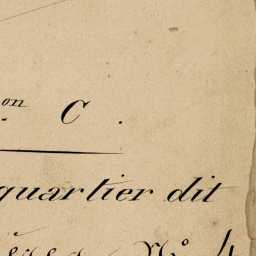 on C.
quartier dit
N° 4